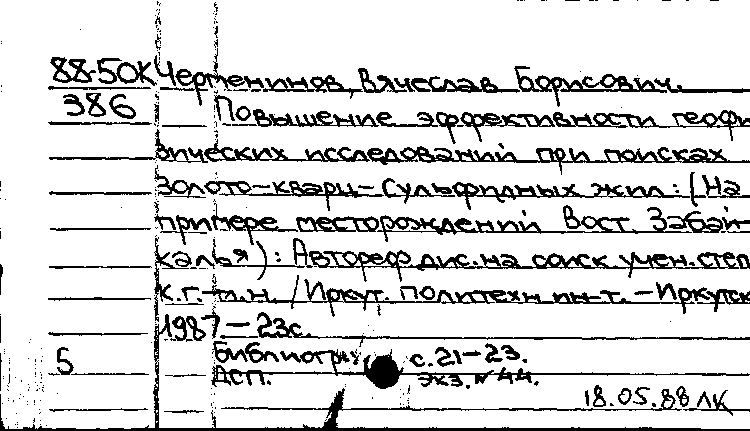 88-50К Чертенинов, Вячеслав Борисович.
386 Повышение эффективности геофи
зических исследований при поисках
золото-кварц-сульфидных жил: (На
примере месторождений Вост. Забай-
калья): Автореф. дис. на соиск. учен. степ
к.г.-м.н. / Иркут. политехн. ин-т. - Иркутск
1987. - 23с.
5 Библиогр.: с. 21-23.
ДСП. экз. № 44.
18.05.88 ЛК